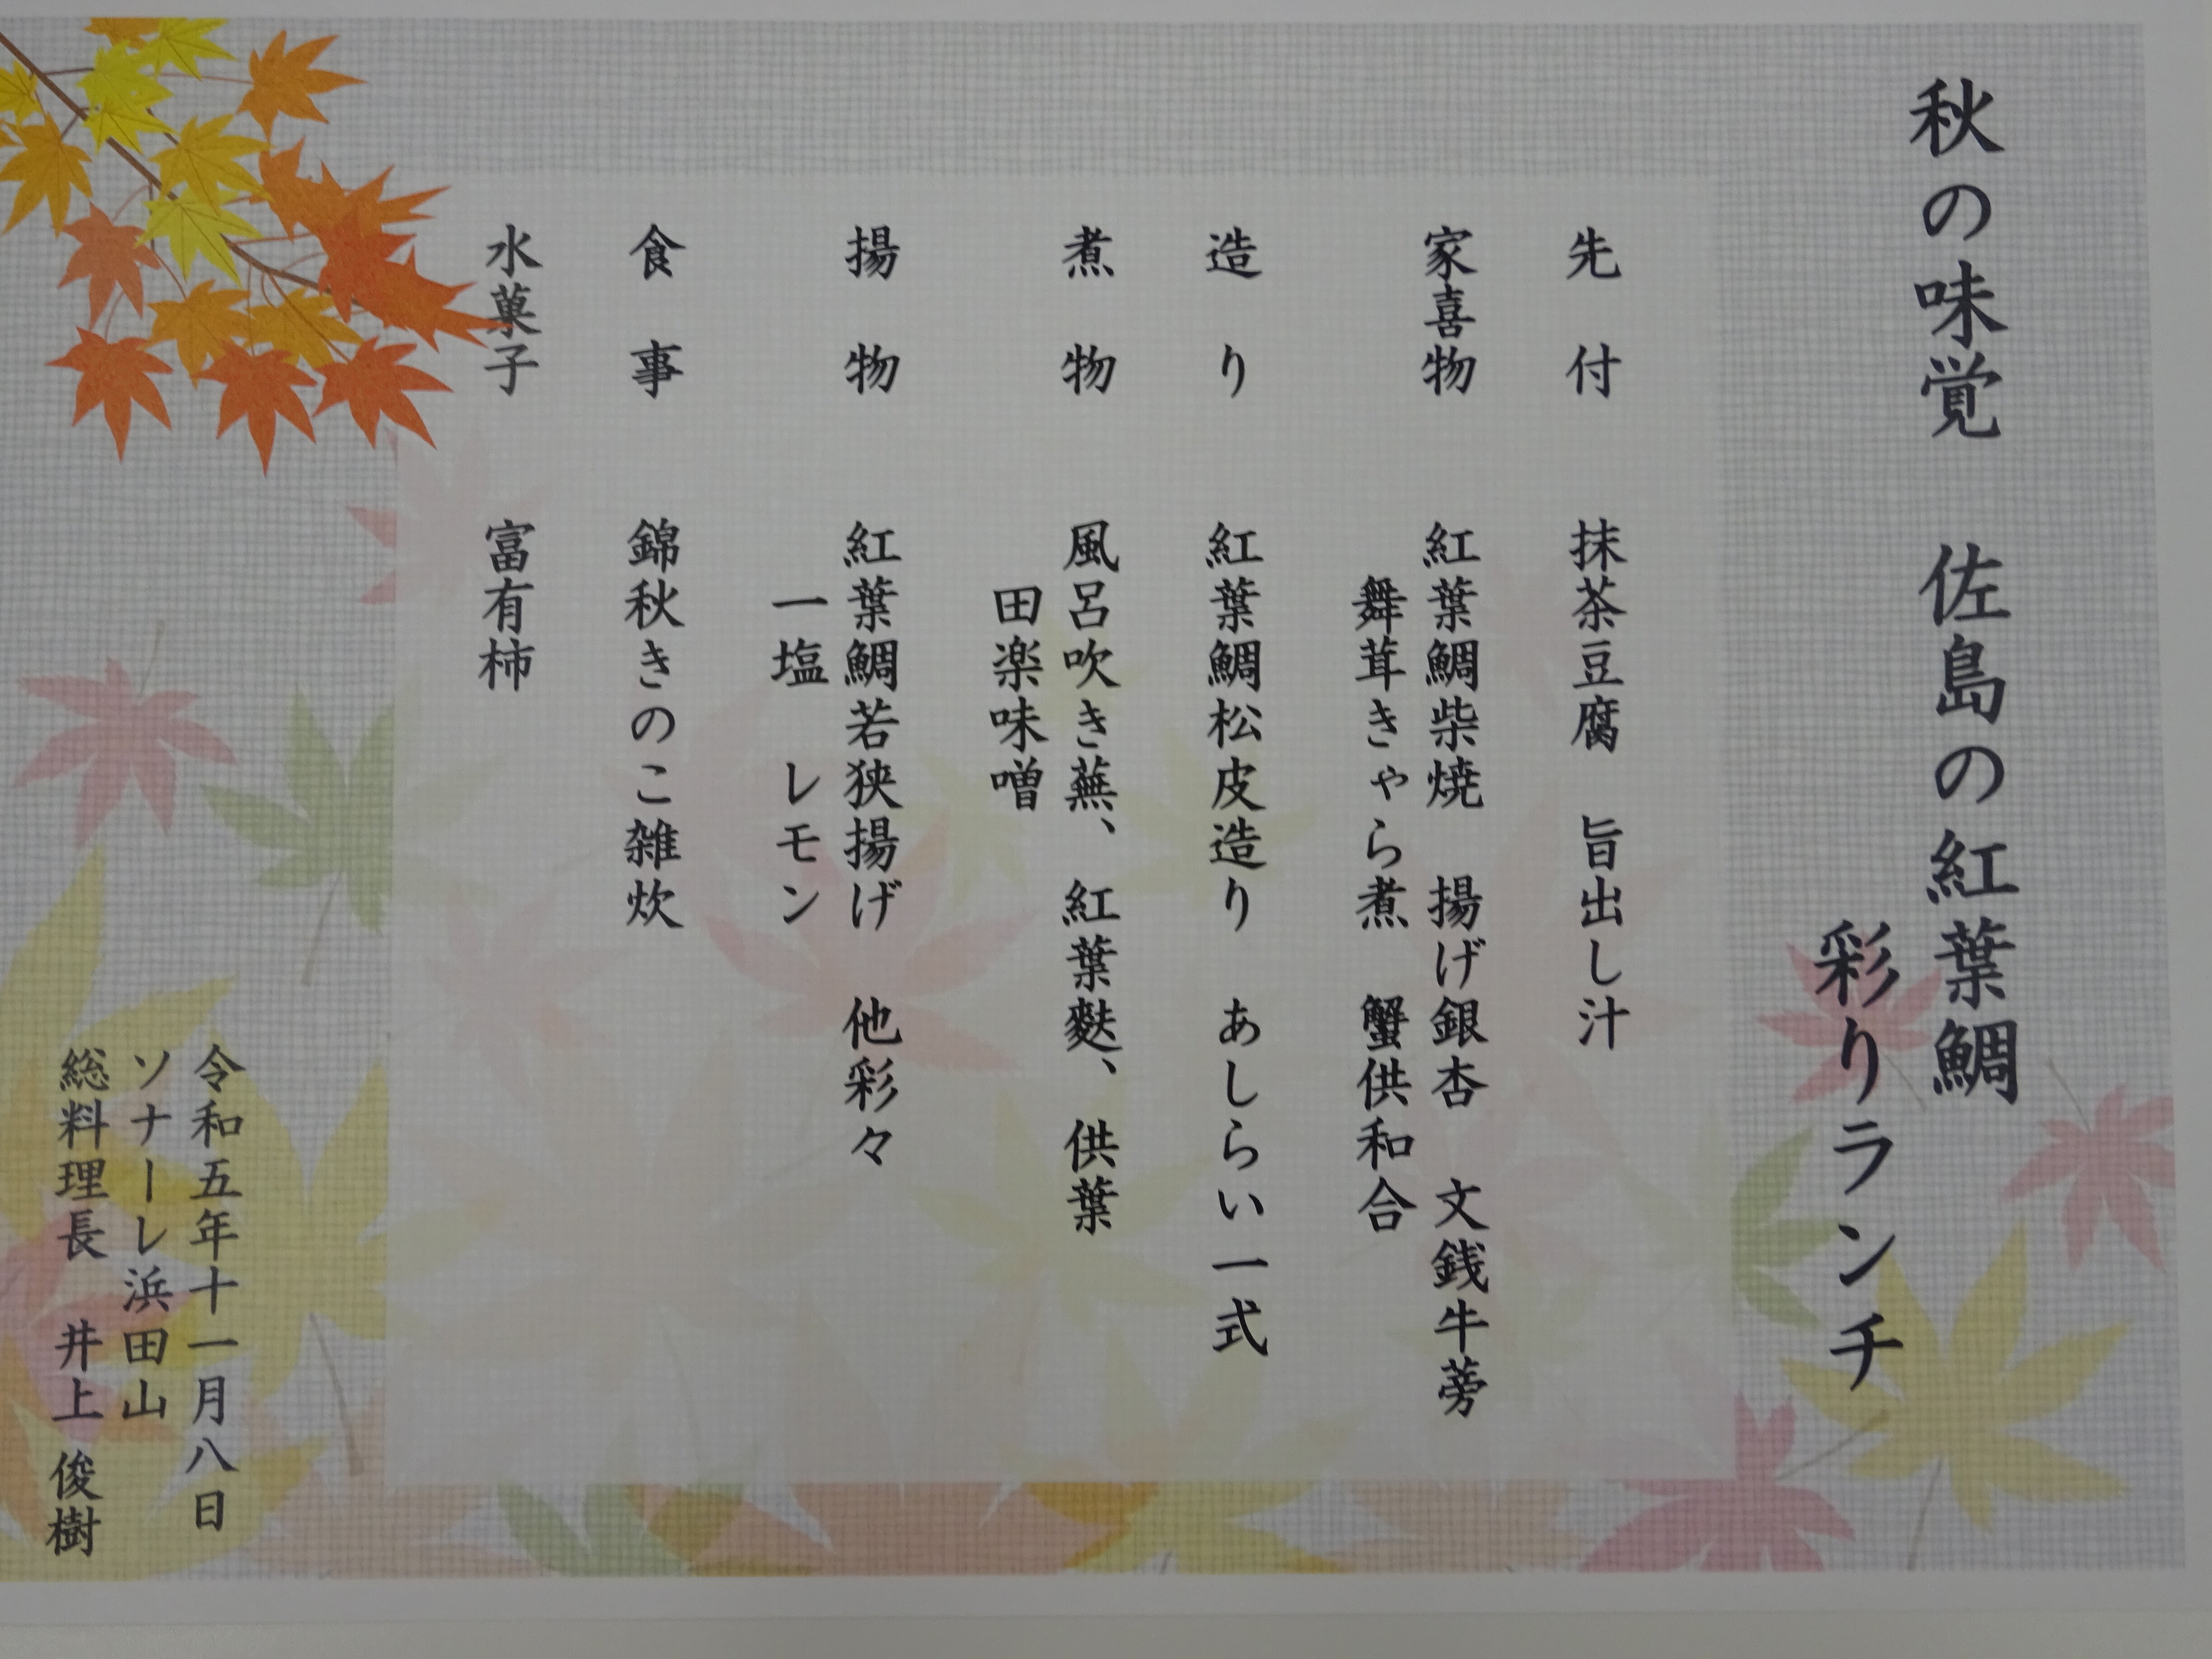 秋の味覚　佐島の紅葉鯛
彩りランチ
先付　抹茶豆腐　旨出し汁
家喜物　紅葉鯛柴焼　揚げ銀杏　文銭牛蒡
舞茸きゃら煮　蟹供和合
造り　紅葉鯛松皮造り　あしらい一式
煮物　風呂吹き蕪、紅葉麩、供葉
田楽味噌
揚物　紅葉鯛若狭揚げ　他彩々
一塩　レモン
食事　錦秋きのこ雑炊
水菓子　富有柿
令和五年十一月八日
ソナーレ浜田山
総料理長　井上　俊樹